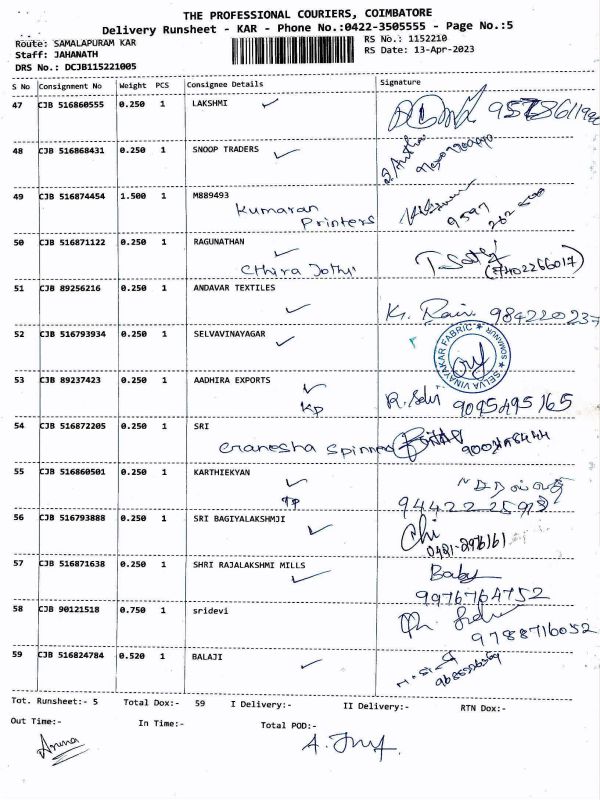 THE PROFESSIONAL COURIERS, COIMBATORE
Delivery Runsheet - KAR - Phone No.:0422-3505555 - Page No.:5
Route: SAMALAPURAM KAR RS No.: 1152210
Staff: JAHANATH RS Date: 13-Apr-2023
DRS No.: DCJB115221005
S No Consignment No Weight PCS Consignee Details Signature
47 CJB 516860555 0.250 1 LAKSHMI
48 CJB 516868431 0.250 1 SNOOP TRADERS
49 CJB 516874454 1.500 1 M889493
Kumaran
Printers
50 CJB 516871122 0.250 1 RAGUNATHAN
(7402266017)
51 CJB 89256216 0.250 1 ANDAVAR TEXTILES
984220237
52 CJB 516793934 0.250 1 SELVAVINAYAGAR
SELVA VINAYAKAR FABRIC ★ SOMANUR ★
53 CJB 89237423 0.250 1 AADHIRA EXPORTS
Kp R. Selvi 9095495165
54 CJB 516872205 0.250 1 SRI
55 CJB 516860501 0.250 1 KARTHIEKYAN
Tp
56 CJB 516793888 0.250 1 SRI BAGIYALAKSHMJI
57 CJB 516871638 0.250 1 SHRI RAJALAKSHMI MILLS
Baby
9976764752
58 CJB 90121518 0.750 1 sridevi
9788716052
59 CJB 516824784 0.520 1 BALAJI
Tot. Runsheet:- 5 Total Dox:- 59 I Delivery:- II Delivery:- RTN Dox:-
Out Time:- In Time:- Total POD:-
Aruna